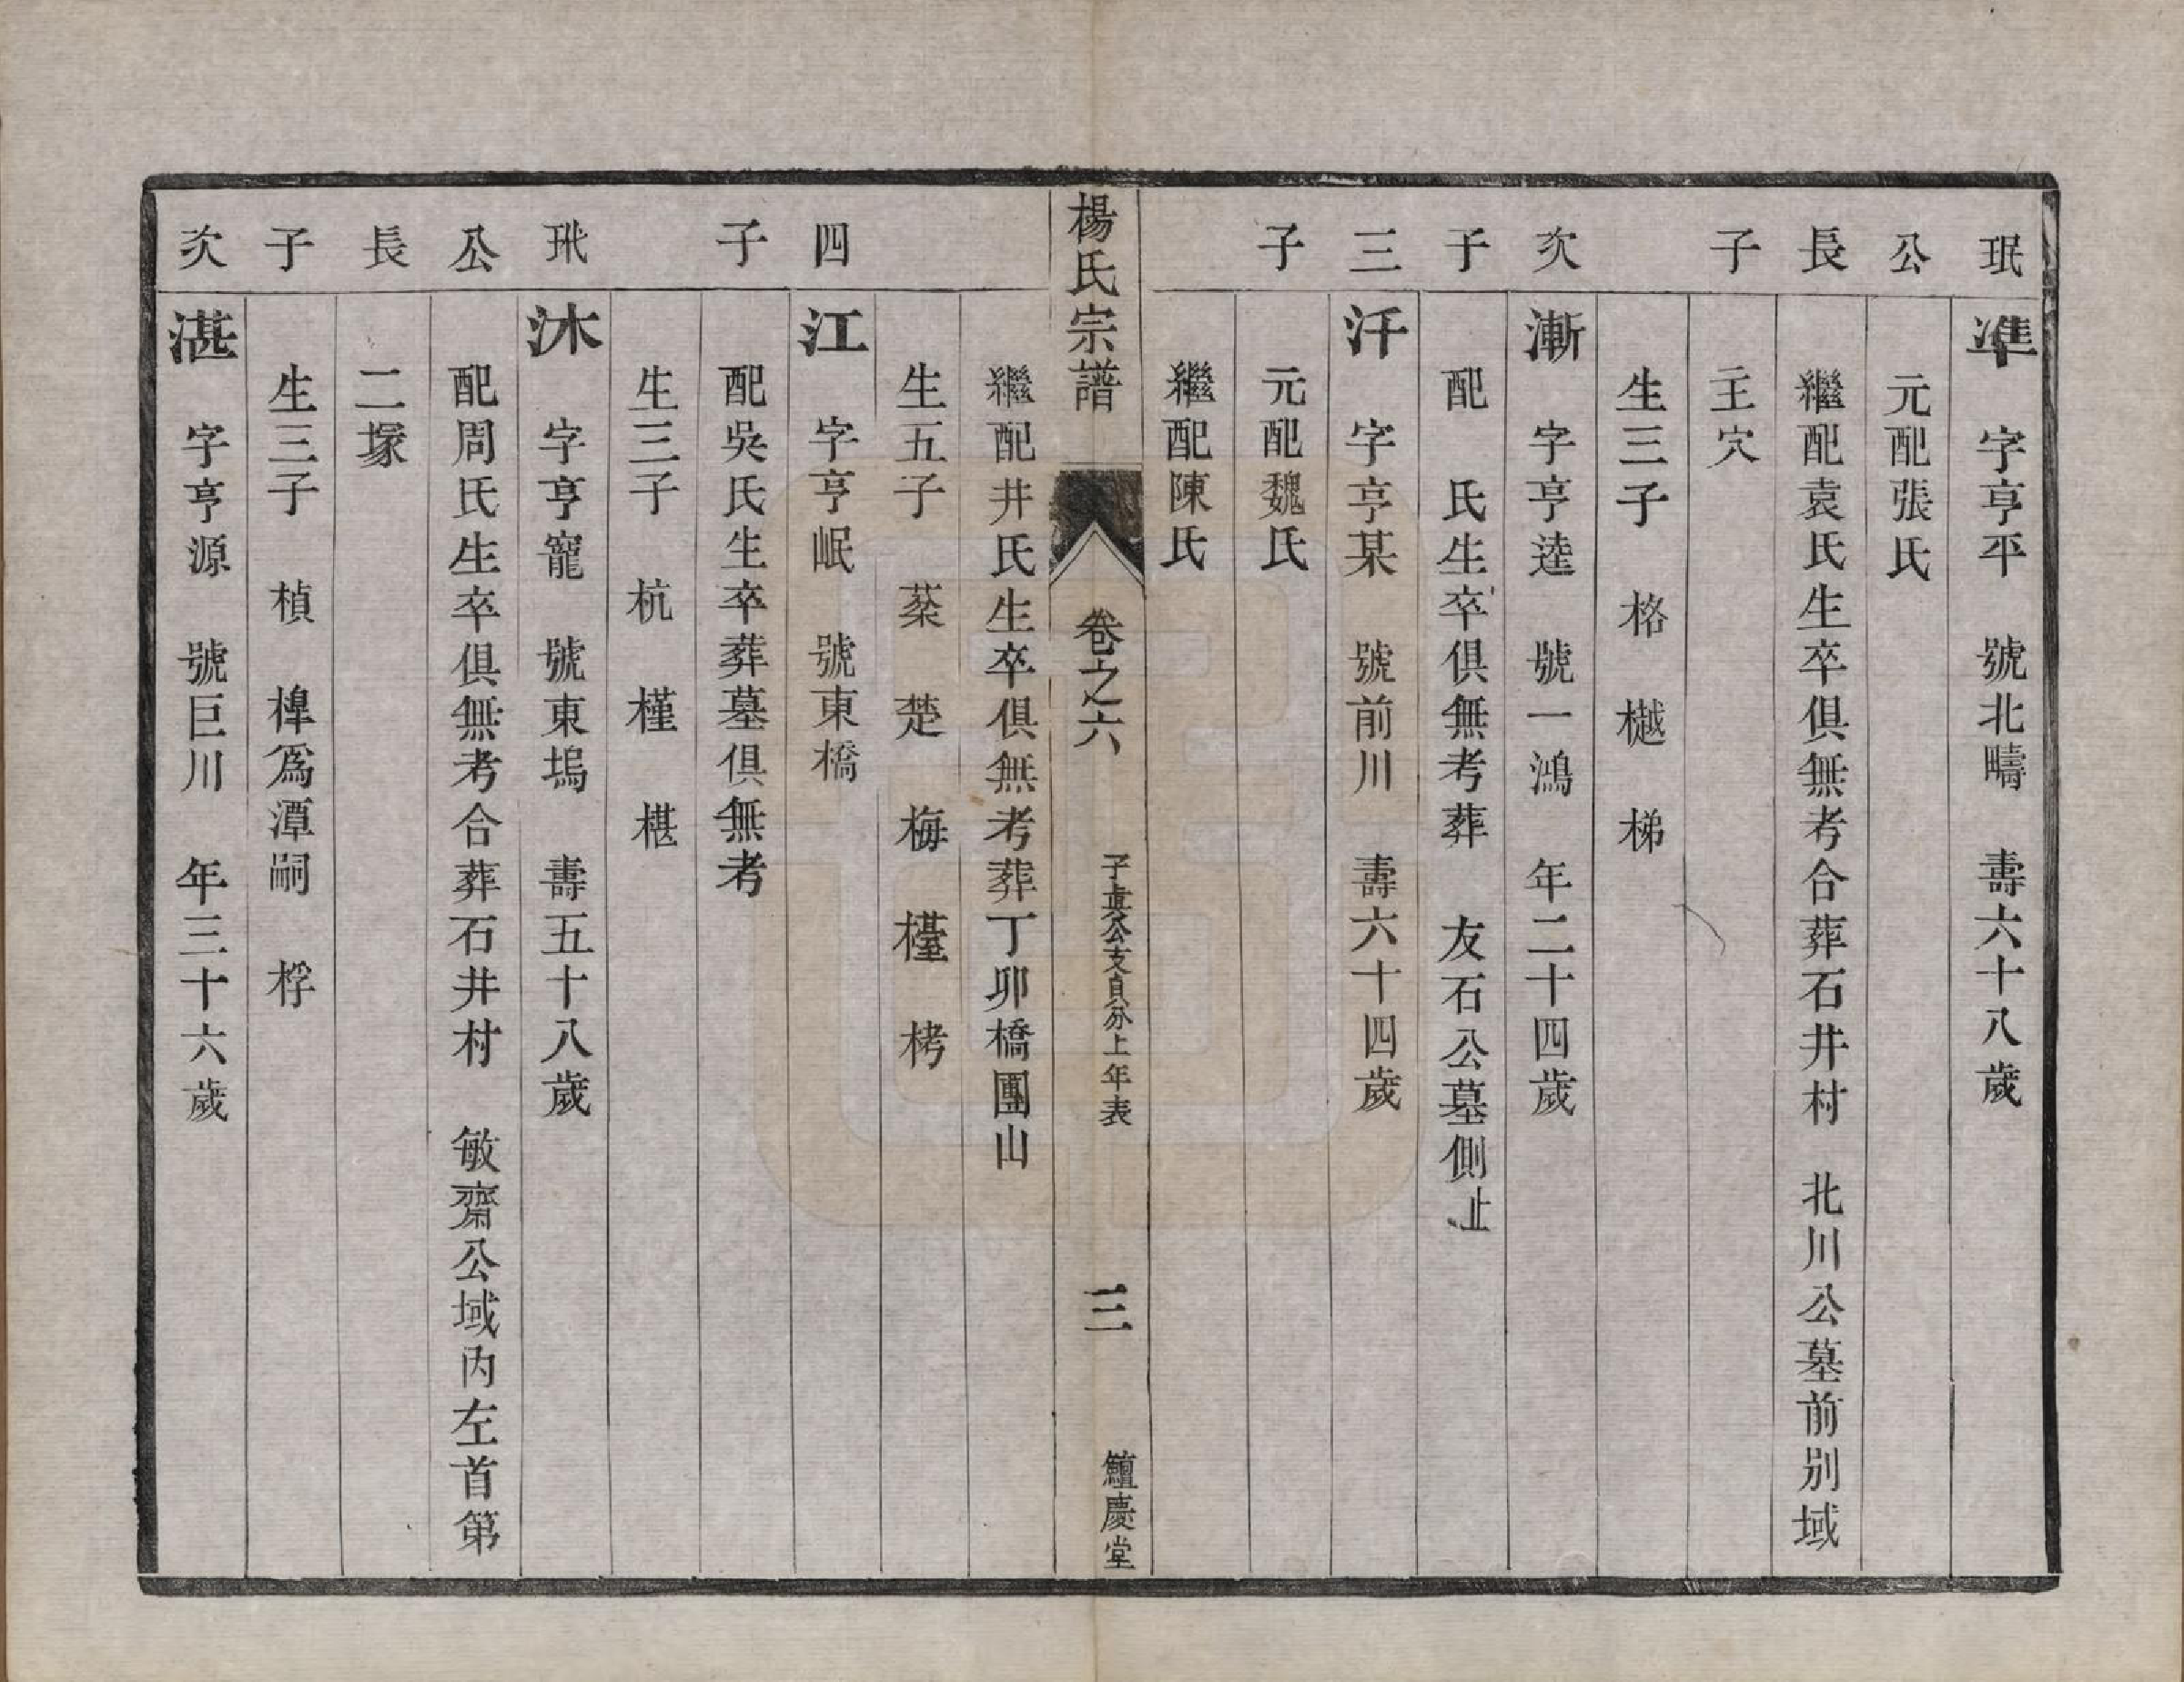 珉
準 字亨平 號北疇 壽六十八歲
公
元配張氏
長
繼配袁氏生卒俱無考合葬石井村 北川公墓前別域
子
主穴
生三子 格 樾 梯
次
漸 字亨逵 號一鴻 年二十四歲
子
配 氏生卒俱無考葬 友石公墓側止
三
汘 字亨某 號前川 壽六十四歲
子
元配魏氏
繼配陳氏
楊氏宗譜 卷之六 子真公支自分上年表 三 鱣慶堂
繼配井氏生卒俱無考葬丁卯橋團山
生五子 棻 楚 梅 檯 栲
四
江 字亨岷 號東橋
子
配吳氏生卒葬墓俱無考
生三子 杭 槿 椹
玳
沐 字亨寵 號東塢 壽五十八歲
公
配周氏生卒俱無考合葬石井村 敏齋公域內左首第
長
二塚
子
生三子 楨 楎爲潭嗣 桴
次
湛 字亨源 號巨川 年三十六歲